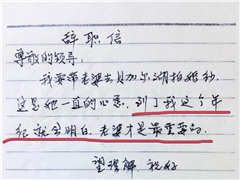 辞职信
尊敬的领导:
我要带老婆去贝加尔湖拍婚纱
这是她一直的心愿,到了我这个年
纪就会明白,老婆才是最重要的.
望理解 祝好